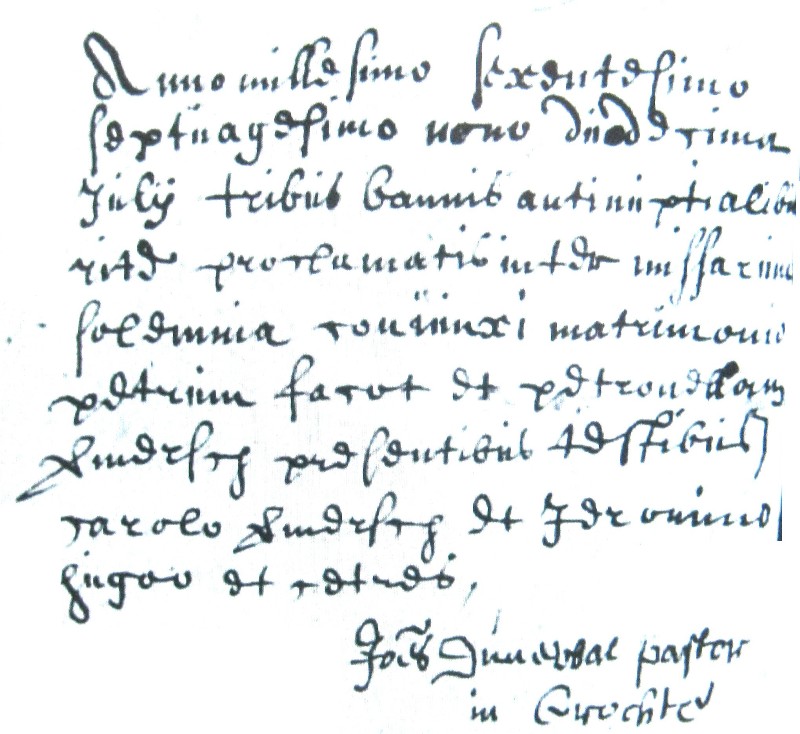 Anno millesimo sexentesimo
septuagesimo nono duodecima
July tribus bannis antinuptialibus
rite proclamatis inter missarum
solemnia coniunxi matrimonio
petrum facot et petronellam
presentibus testibus
carolo et Jeronimo
hugoo et ceteris,
Joes Duneval pastor
in